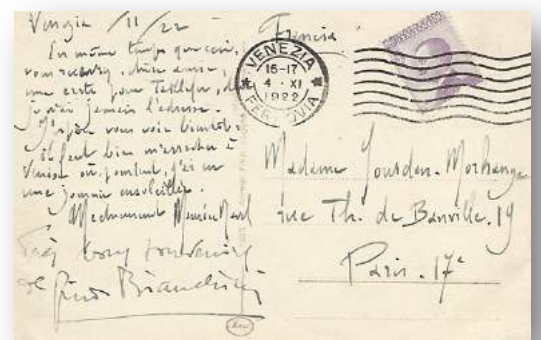 Venezia 11/22
En même temps que ceci,
vous recevrez, chère amie,
une carte pour Taillefer, dont
je n'ai jamais l'adresse.
J'espère vous voir bientôt:
il faut bien m'arracher à
Venise où, pourtant, j'ai eu
une journée ensoleillée.
Maurice Ravel
souvenirs
de
Francia
VENEZIA
16-17
4 · XI
1922
FERROVIA
Madame Jourdan-Morhange
rue Th. de Banville. 19
Paris. 17e